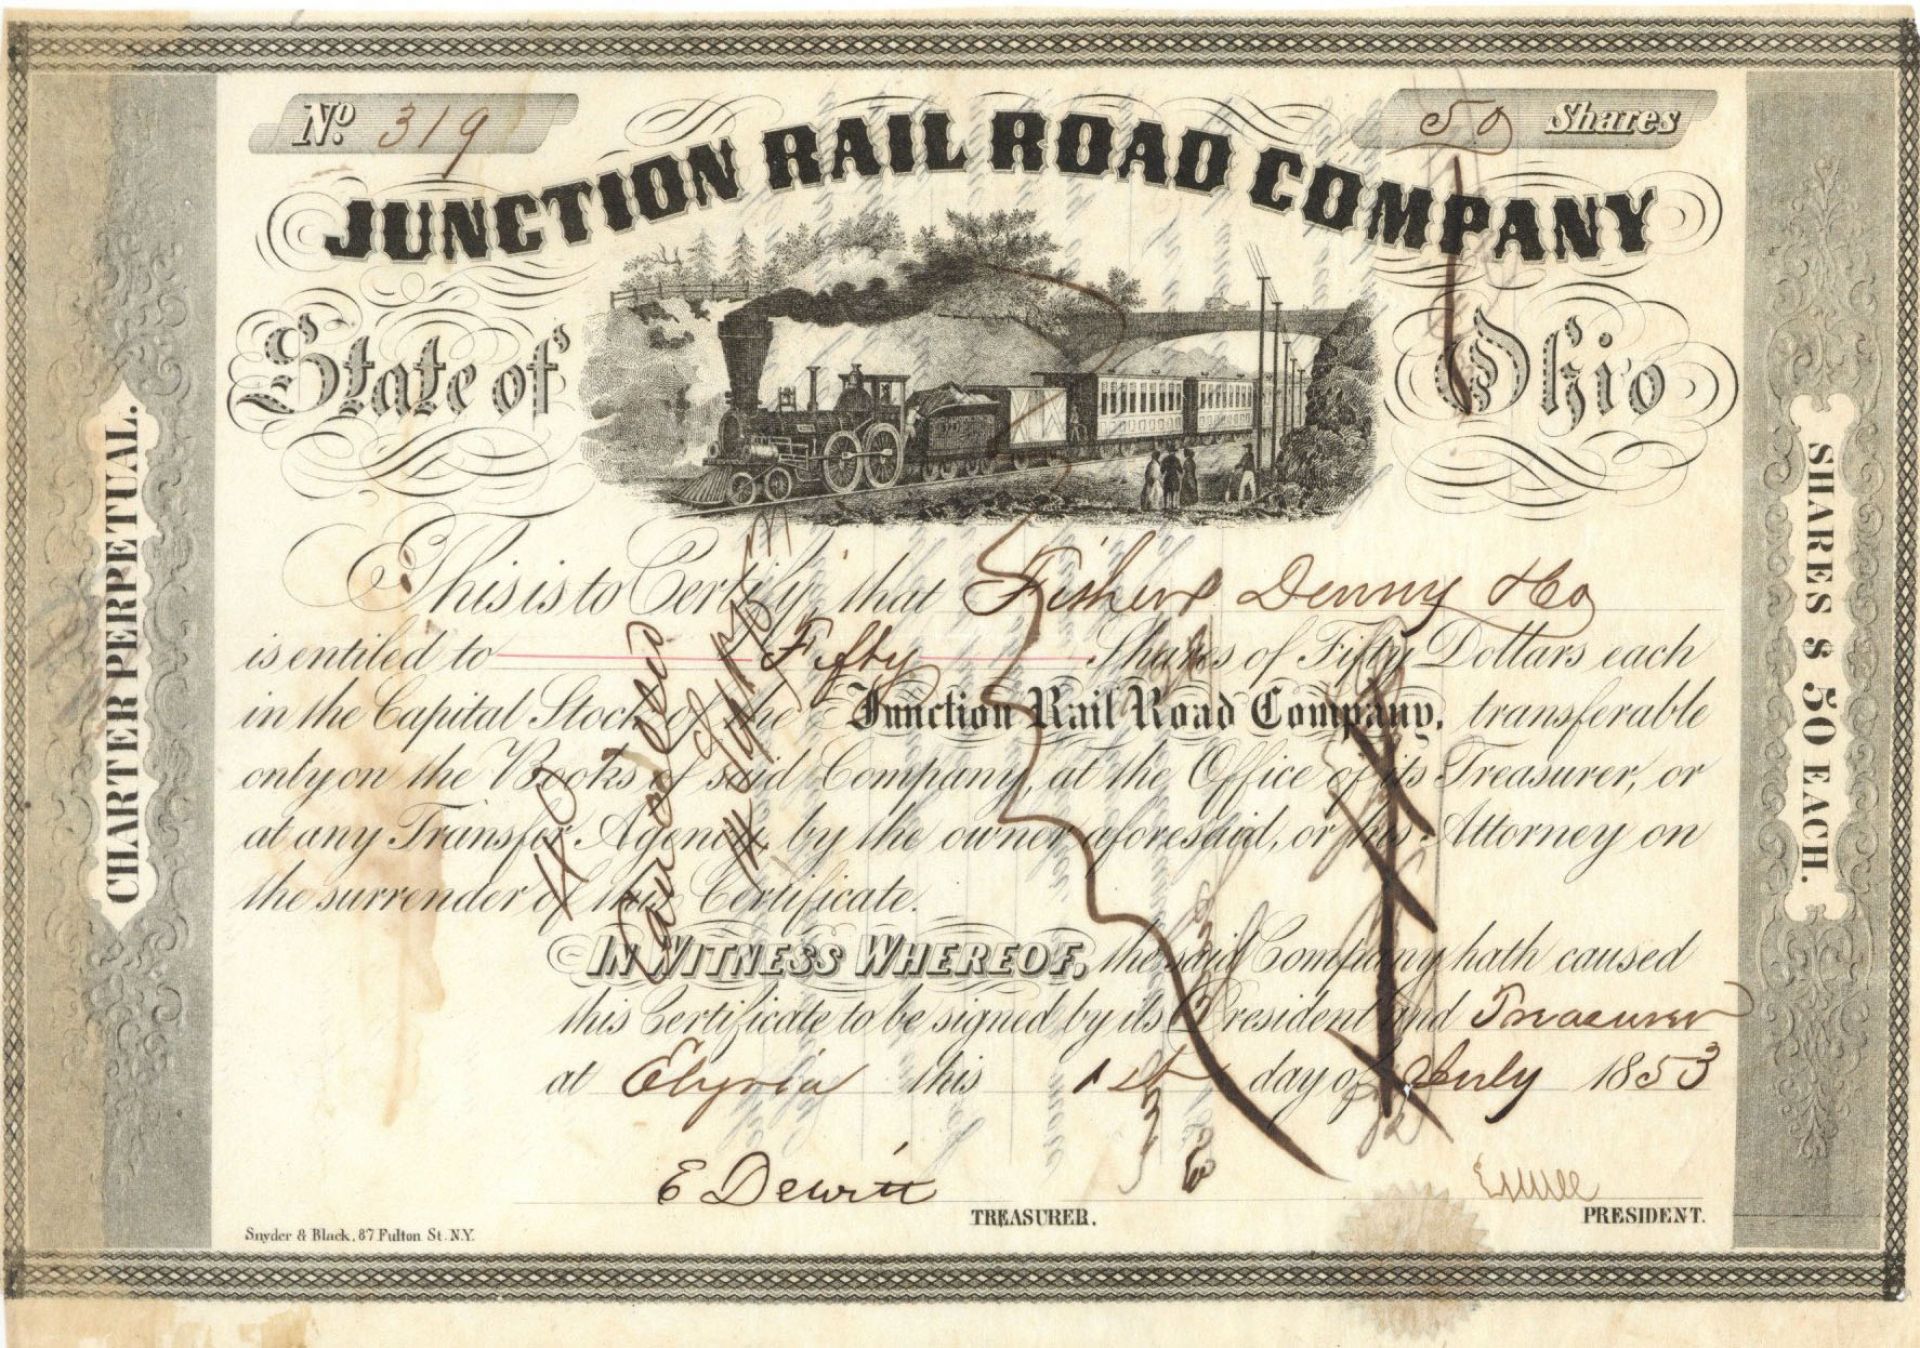 No. 319
50 Shares
JUNCTION RAIL ROAD COMPANY
State of Ohio
CHARTER PERPETUAL.
SHARES $ 50 EACH.
This is to Certify, that Fisher Denny & Co
is entiled to Fifty Shares of Fifty Dollars each
in the Capital Stock of the Junction Rail Road Company, transferable
only on the Books of said Company, at the Office of its Treasurer, or
at any Transfer Agency, by the owner aforesaid, or his Attorney on
the surrender of this Certificate.
IN WITNESS WHEREOF, the said Company hath caused
this Certificate to be signed by its President and Treasurer
at Elyria this 1st day of July 1853
E Dewitt
TREASURER.
PRESIDENT.
Snyder & Black, 87 Fulton St. N.Y.